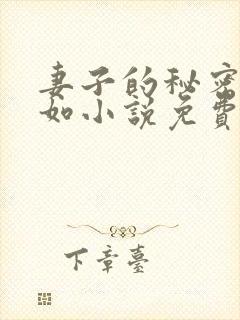 妻子的秘密
如小說免費
下章臺